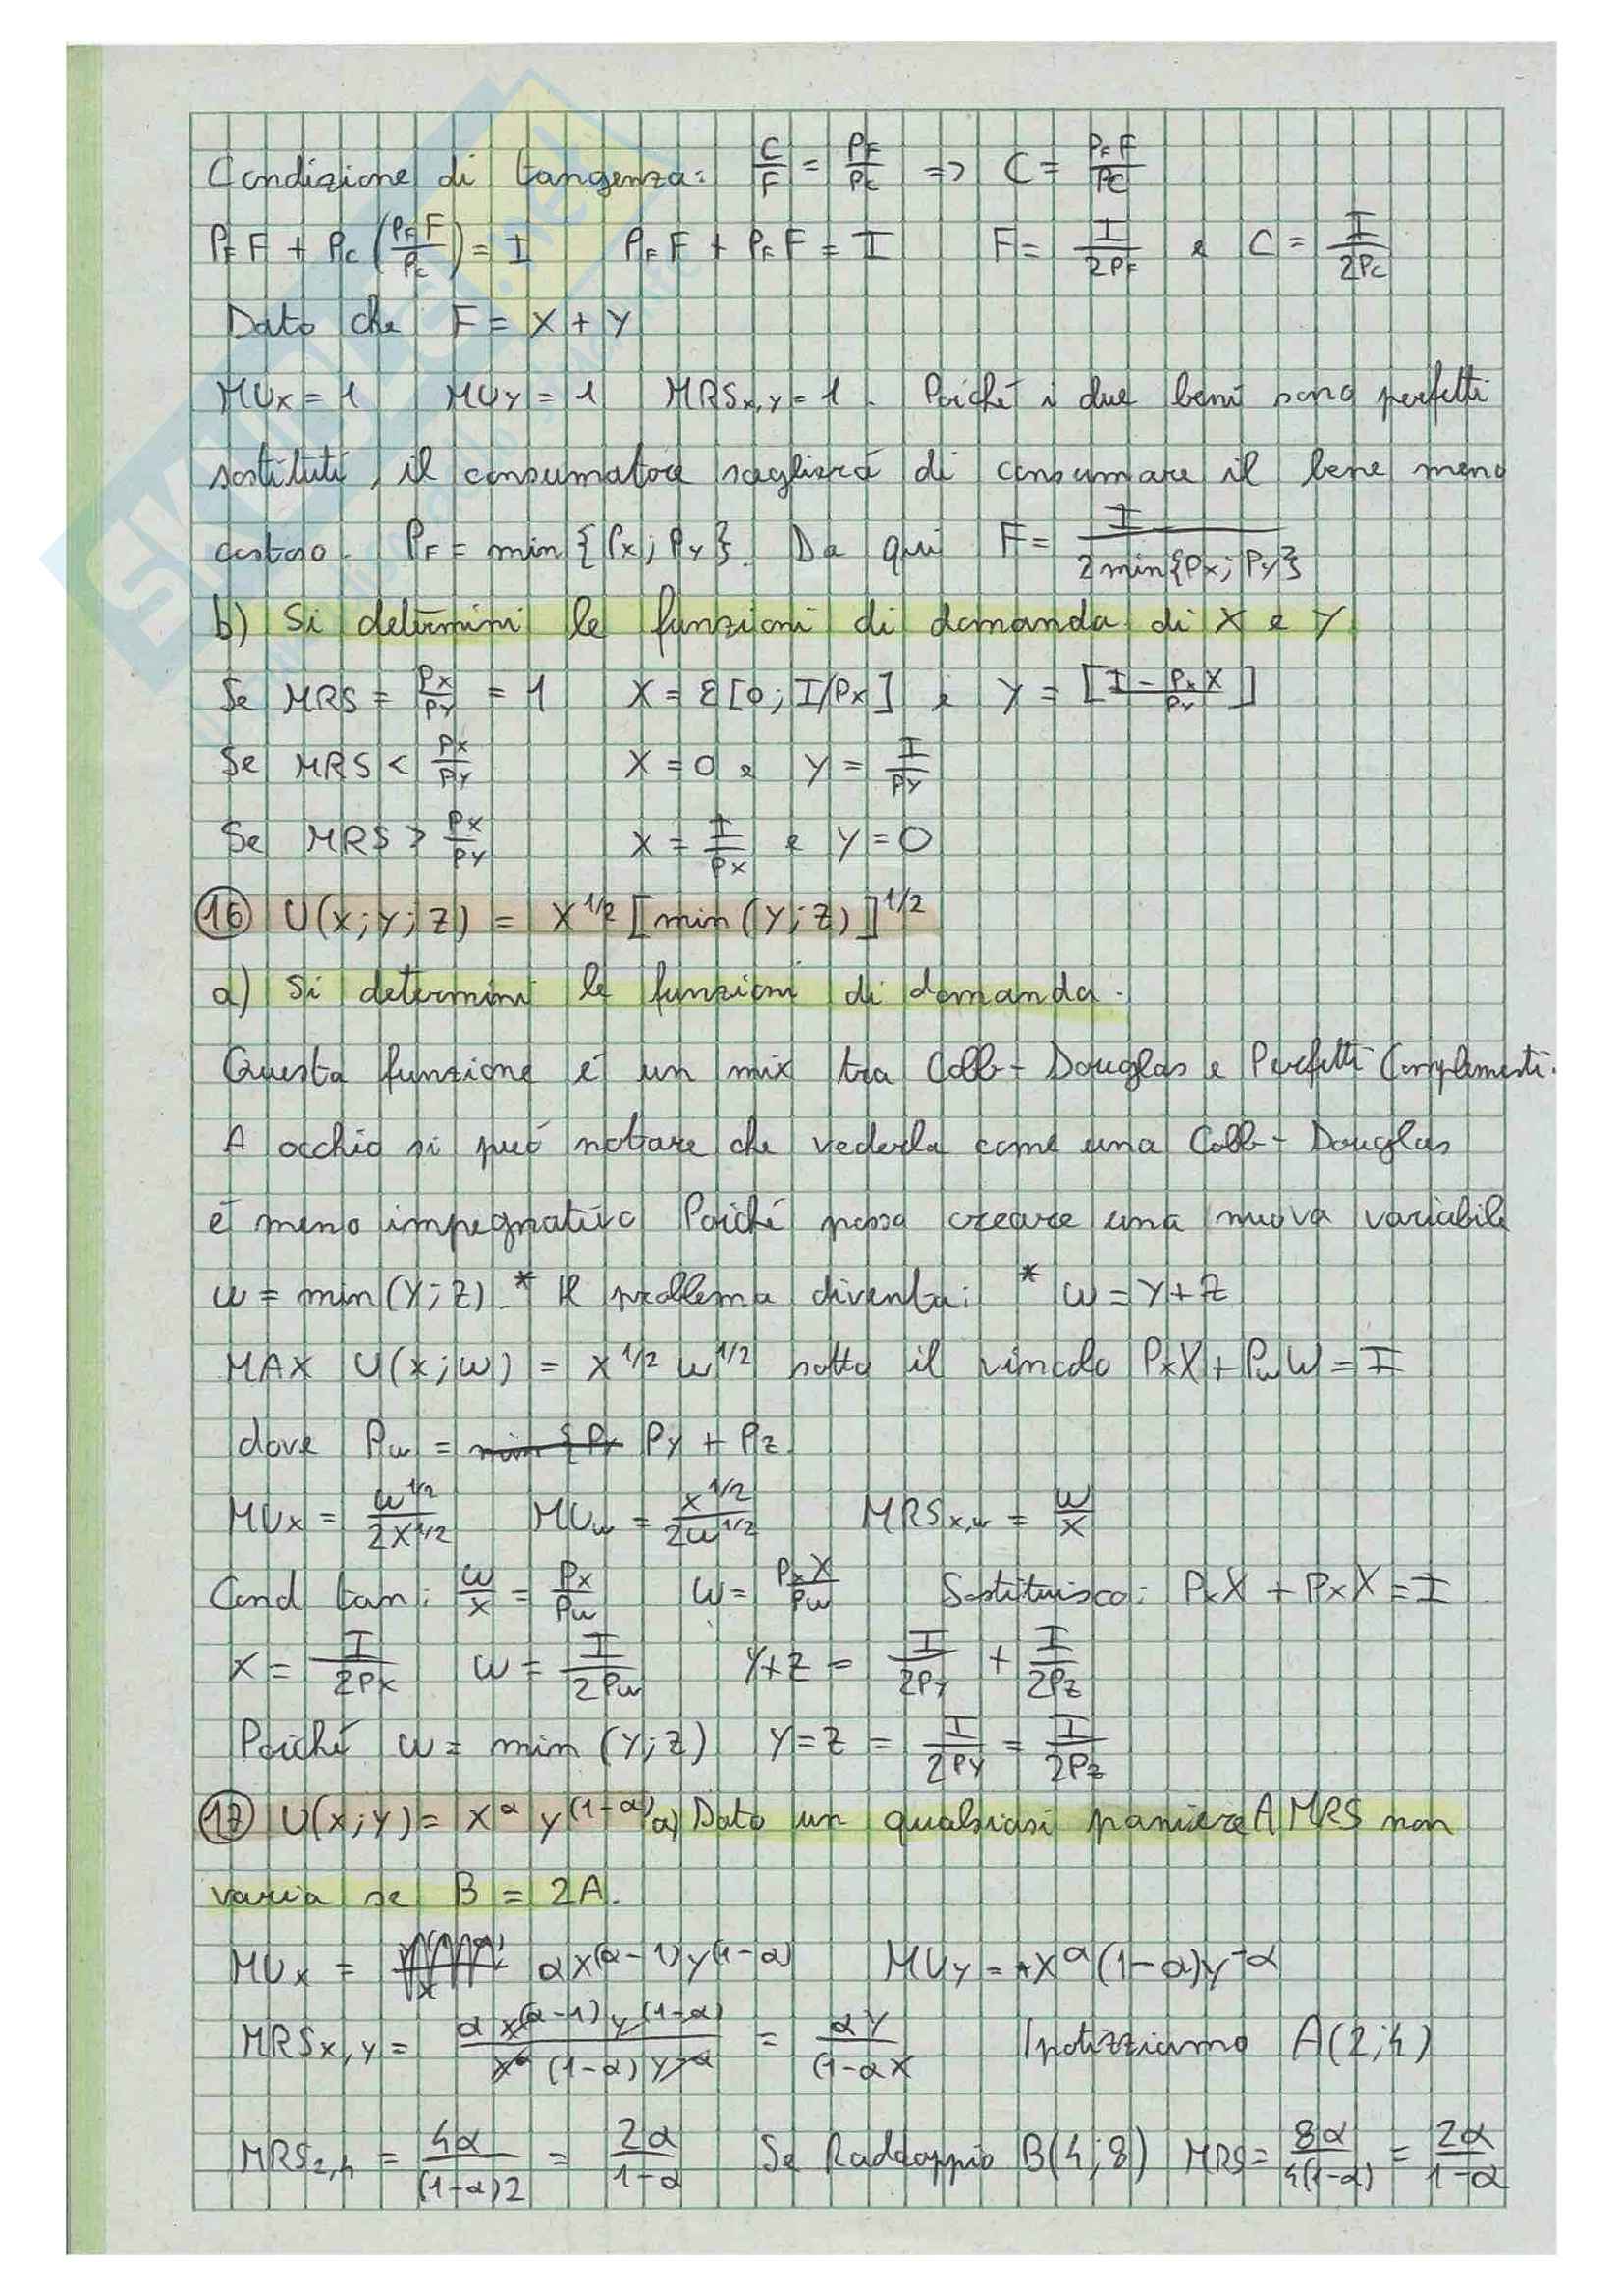 Condizione di tangenza: C/F = PF/PC => C = PF F/PC
PF F + PC (PF F/PC) = I PF F + PF F = I F = I/2PF e C = I/2PC
Dato che F = X + Y
MUx = 1 MUy = 1 MRSx,y = 1. Poiché i due beni sono perfetti
sostituti, il consumatore sceglierá di consumare il bene meno
costoso. PF = min {Px; Py}. Da qui F = I/2min{Px; Py}
b) Si determini le funzioni di domanda di X e Y
Se MRS = Px/Py = 1 X = ε [0; I/Px] e Y = [I - Px X/Py]
Se MRS < Px/Py X = 0 e Y = I/Py
Se MRS > Px/Py X = I/Px e Y = 0
16 U(x;y;z) = X^1/2 [min (y;z)]^1/2
a) Si determini le funzioni di domanda.
Questa funzione é un mix tra Cobb-Douglas e Perfetti Complementi.
A occhio si può notare che vederla come una Cobb-Douglas
é meno impegnativo Poiché posso creare una nuova variabile
w = min (Y; Z).* Il problema diventa: * w = Y + Z
MAX U(x;w) = X^1/2 w^1/2 sotto il vincolo PxX + Pw W = I
dove Pw = min {Py Py + Pz
MUx = w^1/2/2X^1/2 MUw = x^1/2/2w^1/2 MRSx,w = w/x
Cond tan: w/x = Px/Pw w = Px X/Pw Sostituisco: PxX + PxX = I
X = I/2Px w = I/2Pw Y+Z = I/2Py + I/2Pz
Poiché w = min (Y;Z) Y=Z = I/2Py = I/2Pz
17 U(x;y) = X^α y^(1-α) a) Dato un qualsiasi paniere A MRS non
varia se B = 2A.
MUx = αX^(α-1) Y^(1-α) MUy = X^α (1-α) y^-α
MRSx,y = α x^(α-1) y^(1-α)/x^α (1-α) y^-α = αY/(1-αX Ipotizziamo A(2;4)
MRS2,4 = 4α/(1-α)2 = 2α/1-α Se Raddoppio B(4;8) MRS = 8α/4(1-α) = 2α/1-α